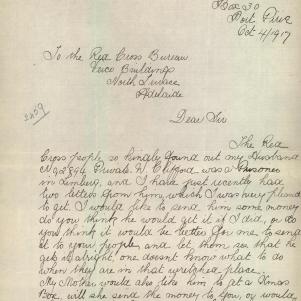 Box 30
Port Pirie
Oct 4/1917
To the Red Cross Bureau
Verco Buildings
North Terrace
Adelaide
2259
Dear Sir
The Red
Cross people so kindly found out my Husband
No 2894 Private W. Clifford was a Prisoner
in Limburg, and I have just recently had
two letters from him, which I was very pleased
to get I would like to send him some money
do you think he would get it if I did, or do
you think it would be better for me to send
it to your people and let them see that he
gets it alright, one doesn't know what to do
when they are in that wretched place.
My Mother would also like him to get a Xmas
Box will she send the money to you, or would